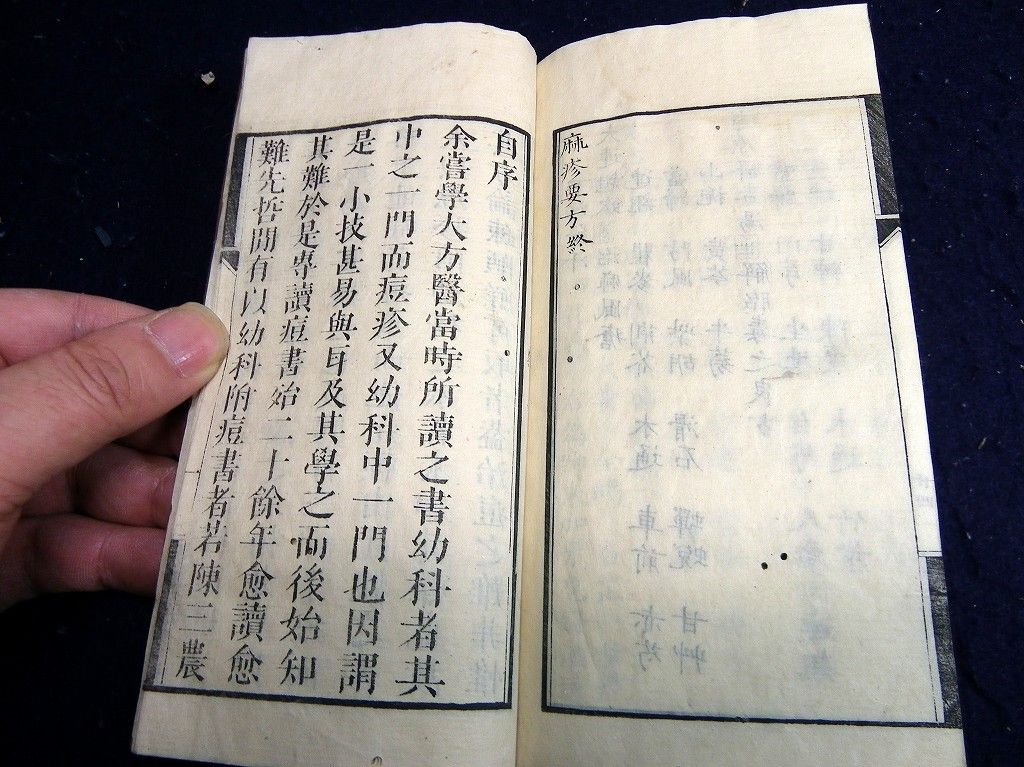 麻疹要方終
自序
余嘗學大方醫當時所讀之書幼科者其
中之一門而痘疹又幼科中一門也因謂
是一小技甚易與耳及其學之而後始知
其難於是專讀痘書始二十餘年愈讀愈
難先哲間有以幼科附痘書者若陳三農